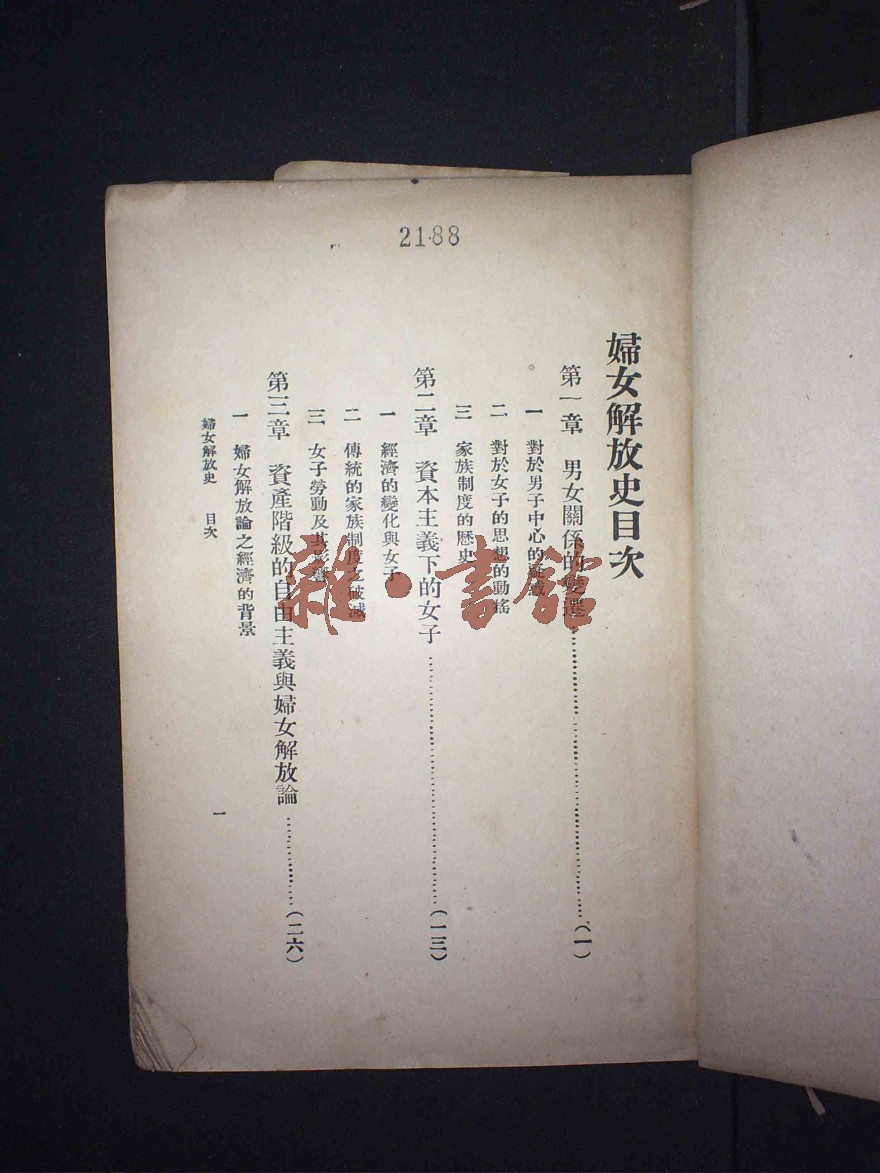 2188
婦女解放史目次
第一章 男女關係的變遷……(一)
一 對於男子中心的
二 對於女子的思想的動搖
三 家族制度的歷史
第二章 資本主義下的女子……(一三)
一 經濟的變化與女子
二 傳統的家族制度之破滅
三 女子勞動及其影響
第三章 資產階級的自由主義與婦女解放論……(二六)
一 婦女解放論之經濟的背景
婦女解放史 目次
一
雜·書館